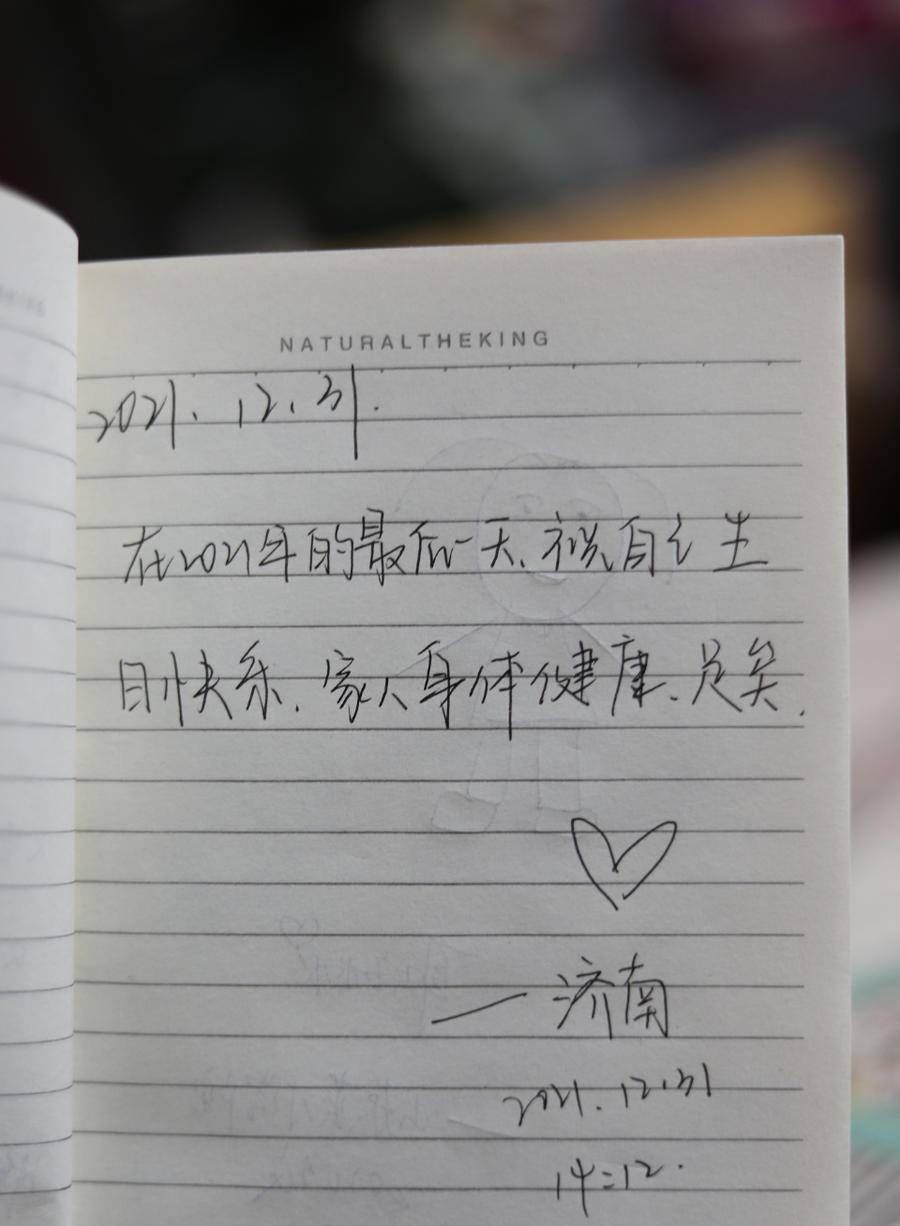 NATURALTHEKING
2021.12.31.
在2021年的最后一天、祝自己生
日快乐.家人身体健康、足矣.
—济南
2021.12.31
14:12.